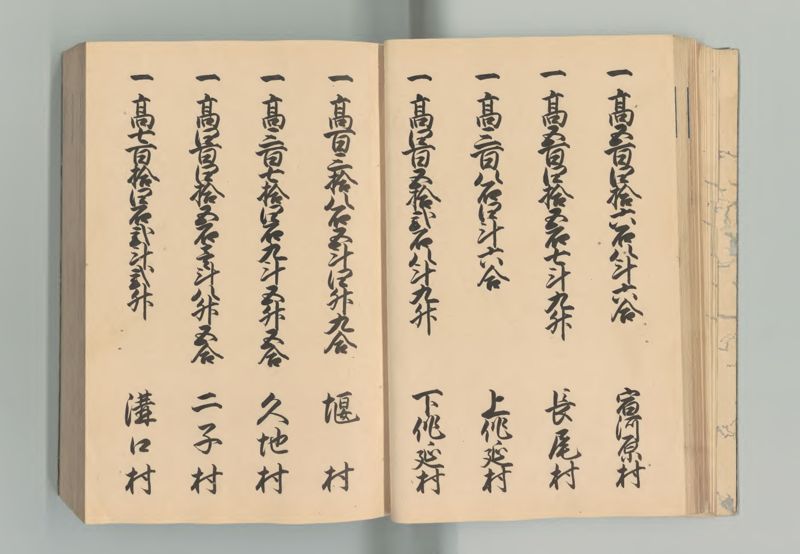 一 高五百四拾六石八斗六合 宿河原村
一 高五百四拾五石七斗九升 長尾村
一 高三百八石四斗六合 上作延村
一 高四百五拾弐石八斗九升 下作延村
一 高百三拾八石五斗四升九合 堰村
一 高三百七拾四石九斗五升五合 久地村
一 高四百四拾五石壱斗八升五合 二子村
一 高七百拾四石弐斗弐升 溝口村